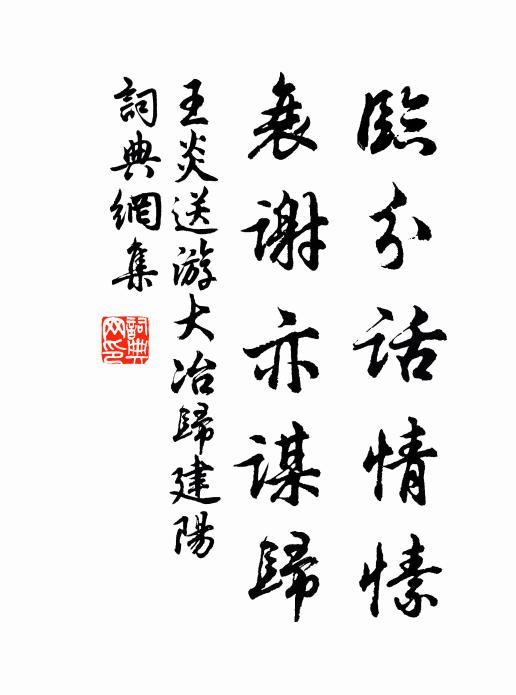 臨分話情愫
衰謝亦謀歸
王炎送游大冶歸建陽
詞典網集
詞典网印